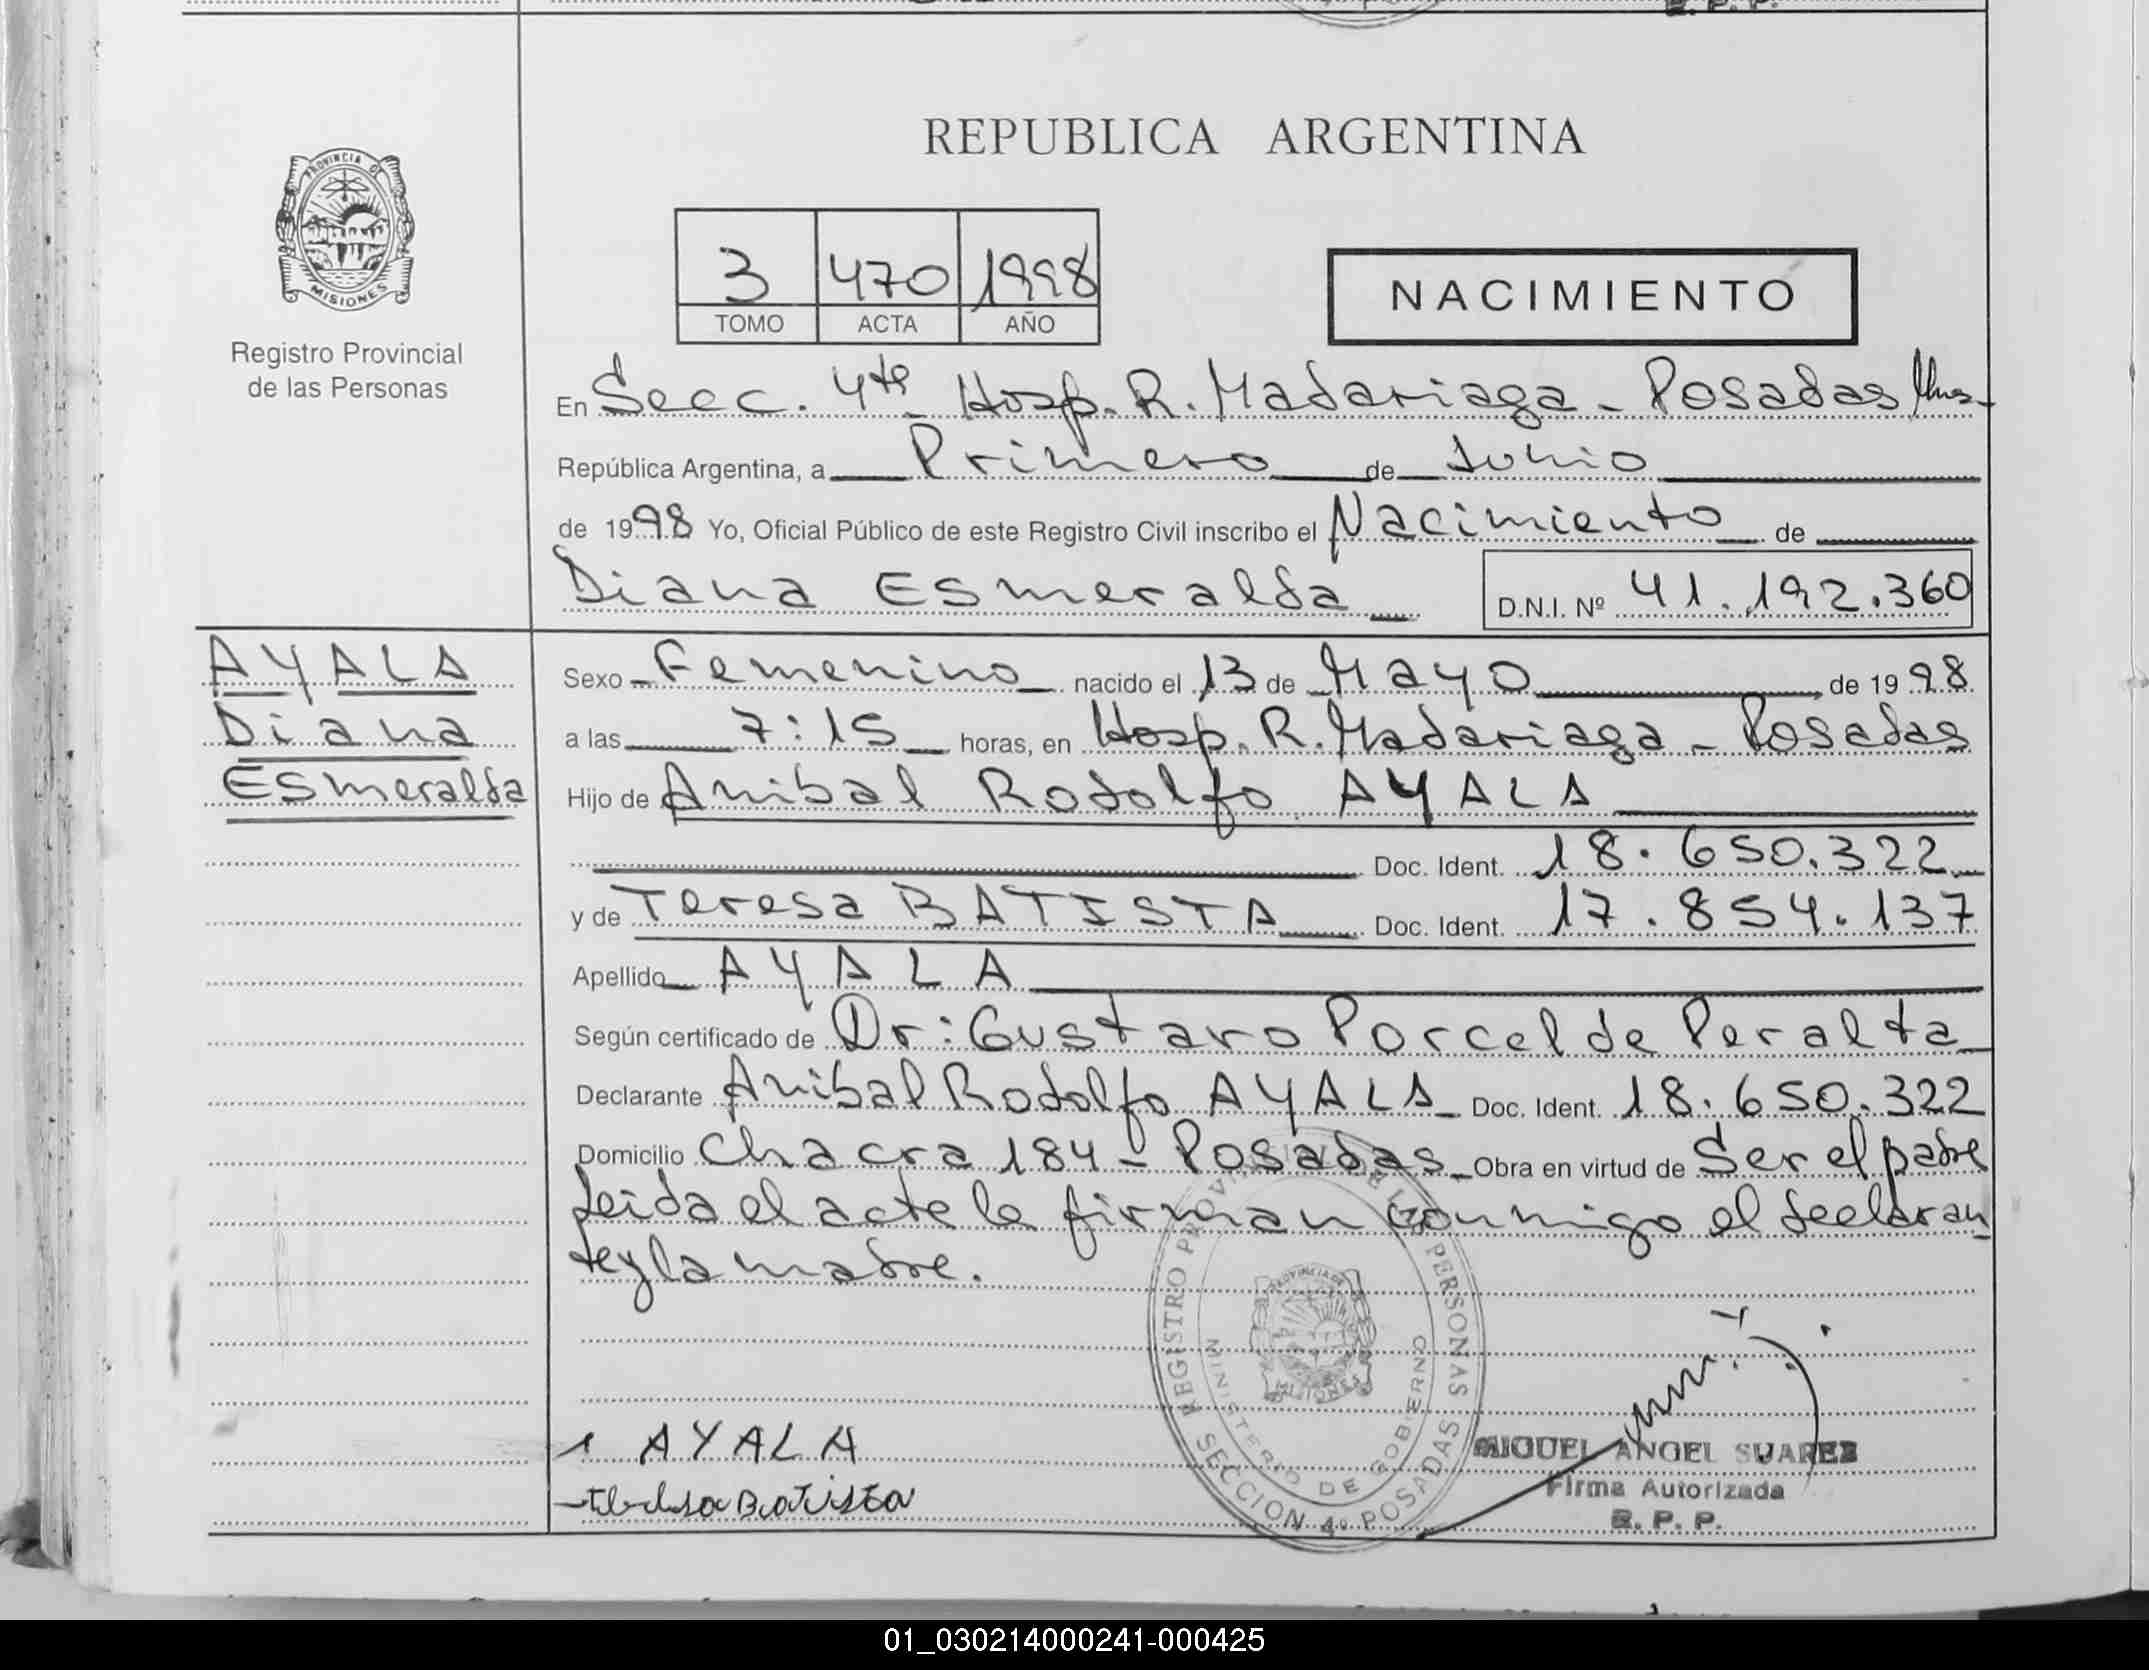 REPUBLICA ARGENTINA
PROVINCIA DE
MISIONES
Registro Provincial
de las Personas
3 470 1998
TOMO ACTA AÑO
NACIMIENTO
En Secc. 4ta Hosp. R. Madariaga - Posadas Mnes-
República Argentina, a Primero de Junio
de 1998 Yo, Oficial Público de este Registro Civil inscribo el Nacimiento de
Diana Esmeralda D.N.I. Nº 41.192.360
AYALA
Diana
Esmeralda
Sexo Femenino nacido el 13 de Mayo de 1998
a las 7:15 horas, en Hosp. R. Madariaga - Posadas
Hijo de Anibal Rodolfo AYALA
Doc. Ident. 18.650.322
y de Teresa BATISTA Doc. Ident. 17.854.137
Apellido AYALA
Según certificado de Dr: Gustavo Porcel de Peralta
Declarante Anibal Rodolfo AYALA Doc. Ident. 18.650.322
Domicilio Chacra 184 - Posadas Obra en virtud de Ser el padre
Leida el acta la firman conmigo el declaran
te y la madre.
REGISTRO PROVINCIAL DE LAS PERSONAS
MINISTERIO DE GOBIERNO
PROVINCIA DE
MISIONES
SECCION 4º POSADAS
AYALA
Batista
MIGUEL ANGEL SUAREZ
Firma Autorizada
R. P. P.
01_030214000241-000425